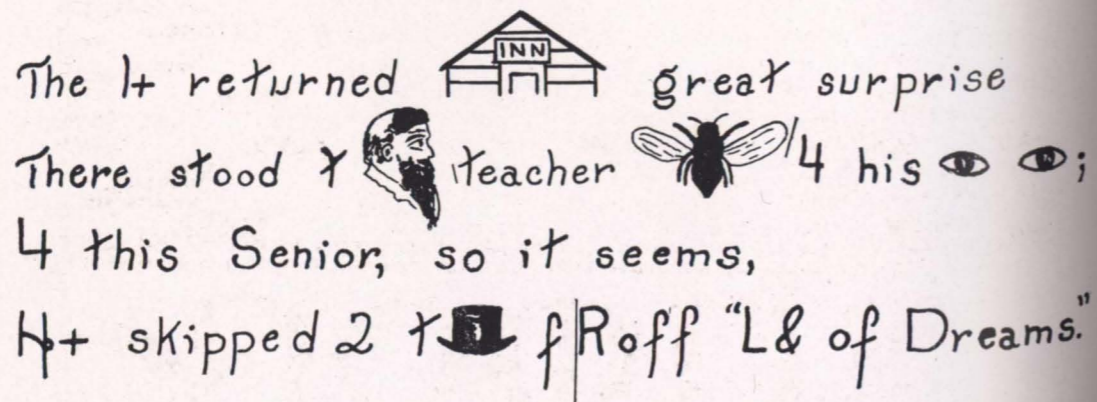 The 1+ returned INN great surprise
There stood t teacher 4 his ;
4 this Senior, so it seems,
H+ skipped 2 t f R off "L& of Dreams."